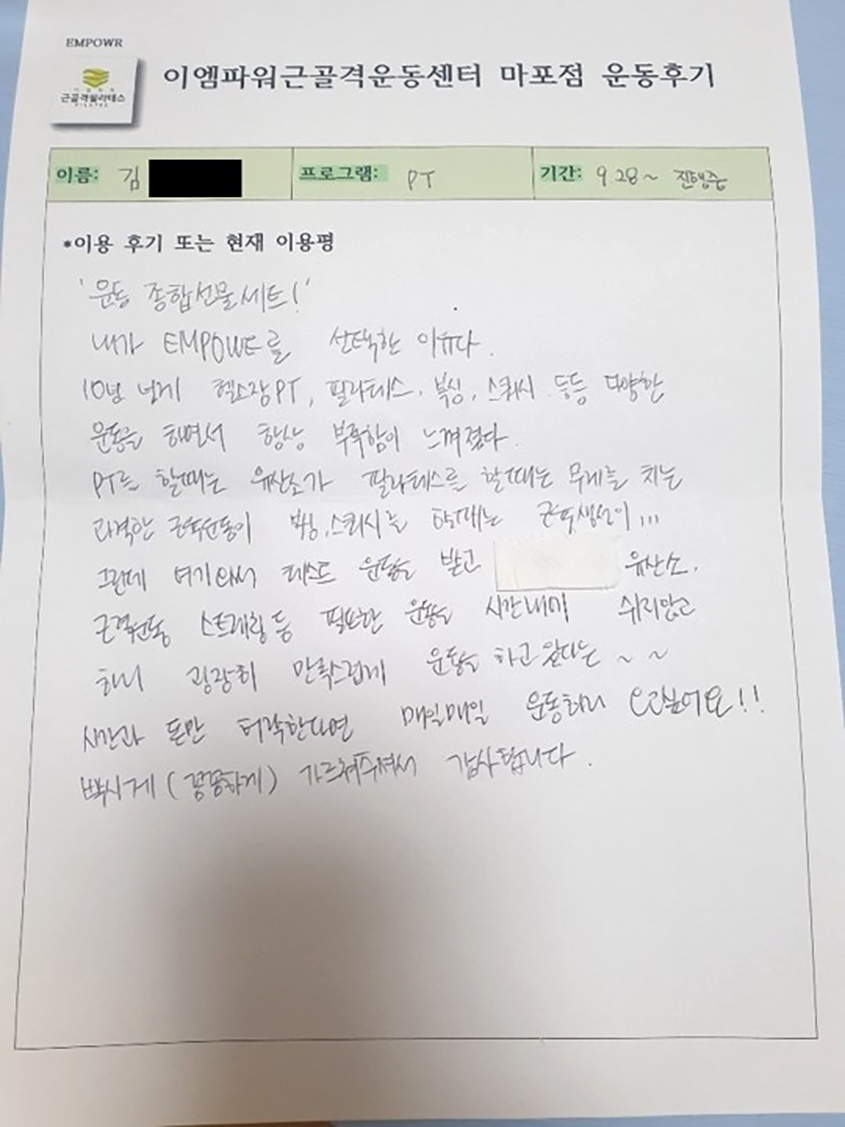 EMPOWR
근골격필라테스
PILATES
이엠파워근골격운동센터 마포점 운동후기
이름: 김
프로그램: PT
기간: 9.28~ 진행중
*이용 후기 또는 현재 이용평
'운동 종합선물세트!'
내가 EMPOWE를 선택한 이유다.
10년 넘게 헬스장PT, 필라테스. 복싱, 스쿼시 등등 다양한
운동을 하면서 항상 부족함이 느껴졌다.
PT를 할때는 유산소가 필라테스를 할때는 무게를 치는
과격한 근육운동이 복싱,스쿼시를 할때는 근육생성이...
그런데 여기와서 테스트 운동을 받고 유산소.
근력운동 스트레칭 등 필요한 운동을 시간내에 쉬지않고
하니 굉장히 만족스럽게 운동을 하고 있다는 ~ ~
시간과 돈만 허락한다면 매일매일 운동하러 오고싶어요!!
빡시게 (꼼꼼하게) 가르쳐주셔서 감사합니다.